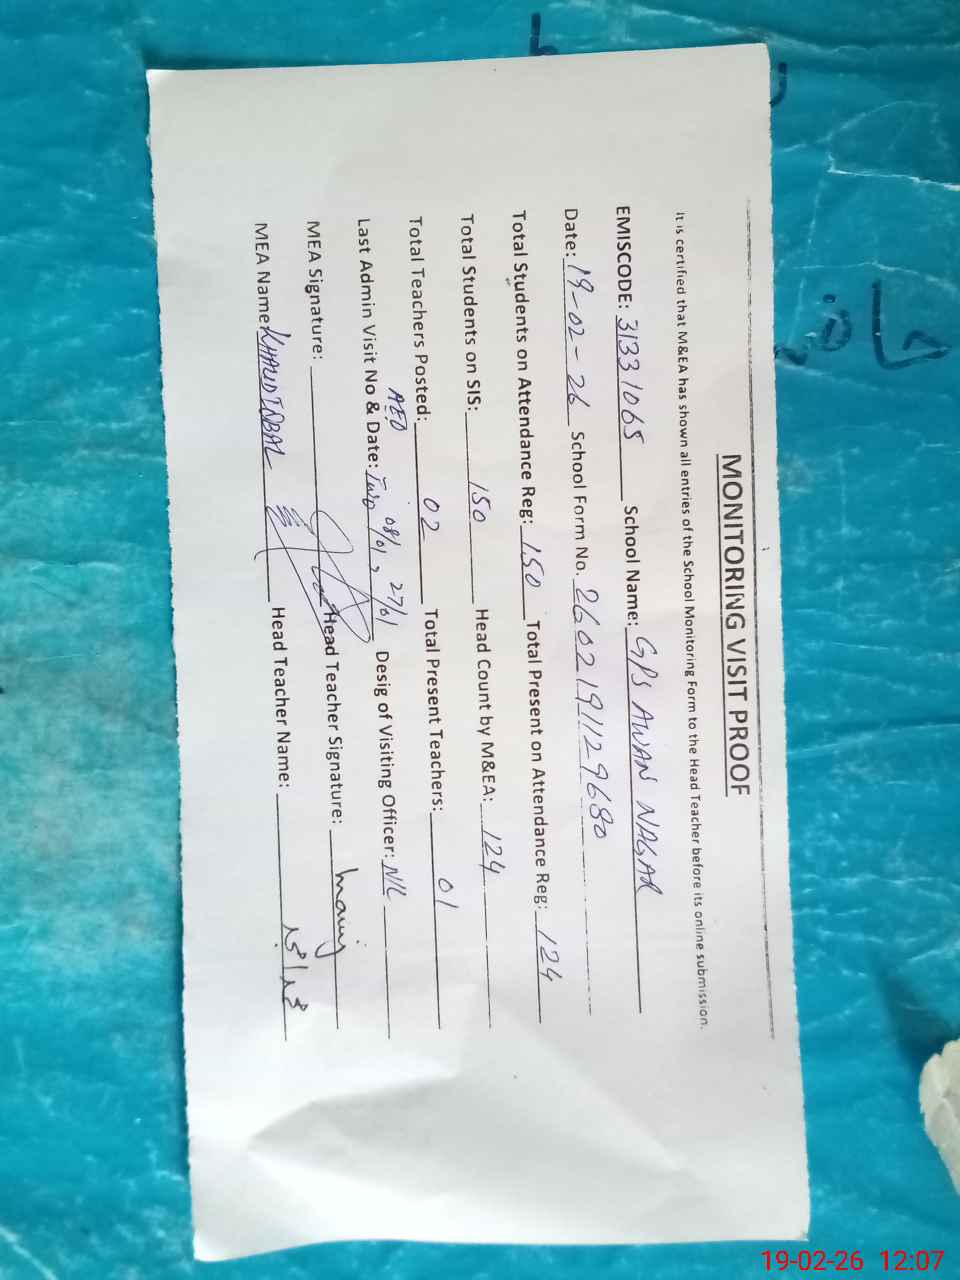 MONITORING VISIT PROOF
It is certified that M&EA has shown all entries of the School Monitoring Form to the Head Teacher before its online submission.
EMISCODE: 31331065 School Name: GPS AWAN NAGAR
Date: 19-02-26 School Form No. 2602191129680
Total Students on Attendance Reg: 150 Total Present on Attendance Reg: 124
Total Students on SIS: 150 Head Count by M&EA: 124
Total Teachers Posted: 02 Total Present Teachers: 01
AEO
Last Admin Visit No & Date: Two 08/01, 27/01 Desig of Visiting Officer: NIL
MEA Signature: Head Teacher Signature:
MEA Name: KHALID IQBAL Head Teacher Name:
19-02-26 12:07